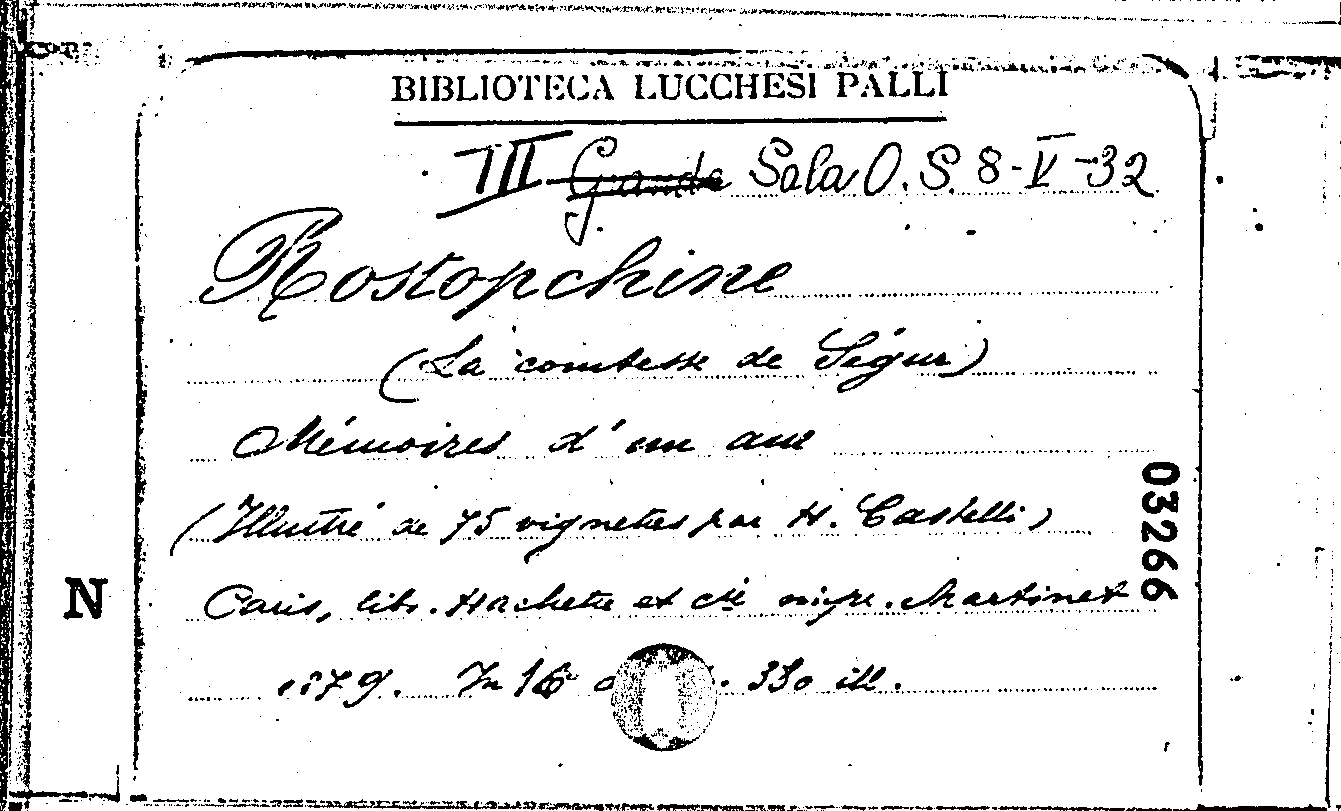 BIBLIOTECA LUCCHESI PALLI
III Grande Sala O. S. 8-V-32
Rostopchine
(La comtesse de Ségur)
Mémoires d'un ane
(Illustré de 75 vignettes par H. Castelli)
03266
N
Paris, libr. Hachette et Cie impr. Martinet
1879. In 16° 330 ill.